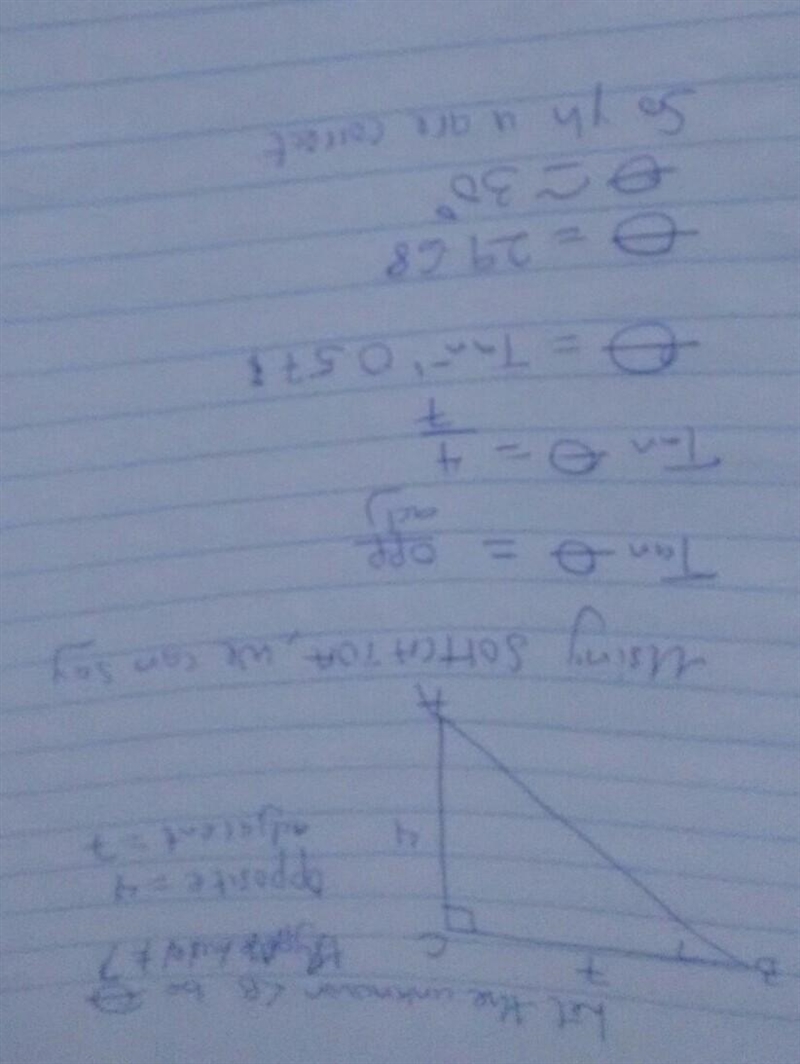 Let the unknown <B be θ
opposite = 4
adjacent = 7
B
7
C
4
A
Using SOHCAHTOA, we can say
Tan θ = opp
adj
Tan θ = 4
7
θ = Tan⁻¹ 0.571
θ = 29.68
θ ≃ 30°
So yh u are correct